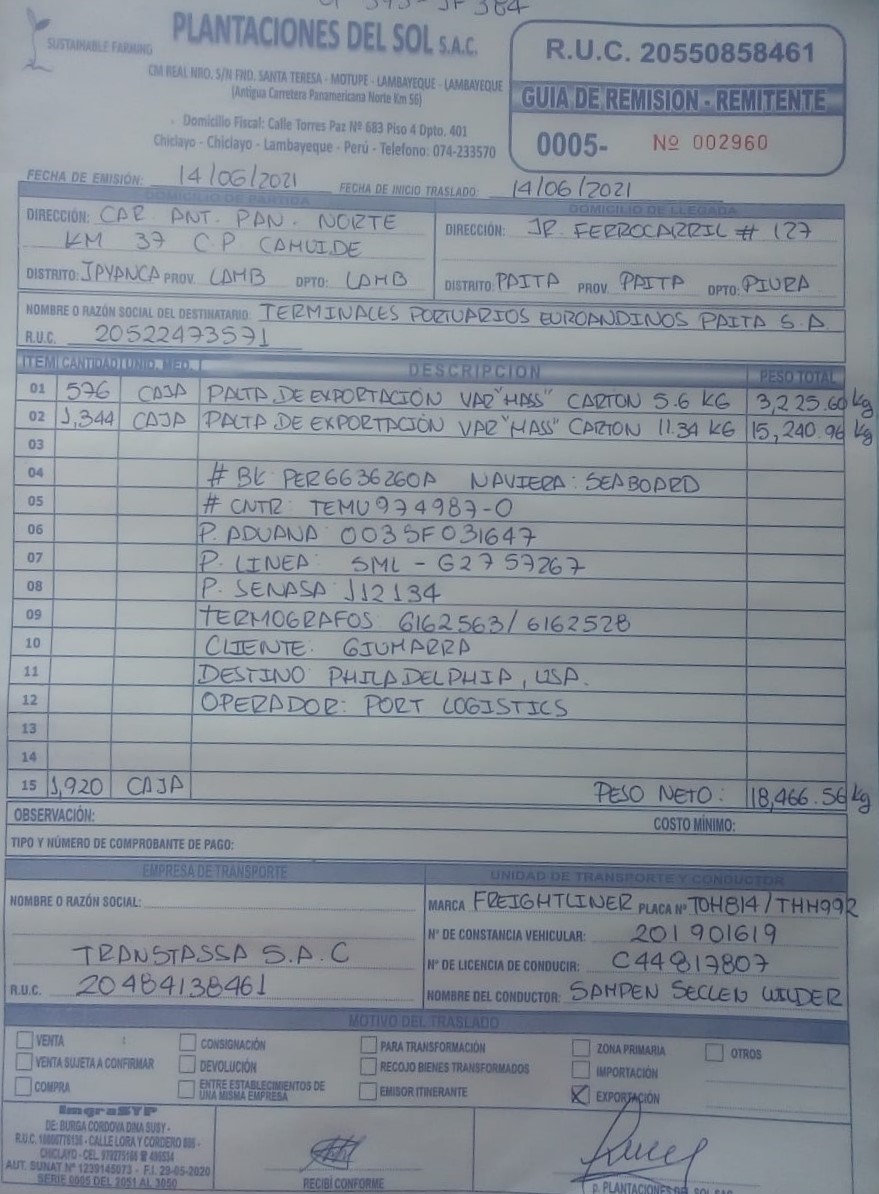 SUSTAINABLE FARMING
PLANTACIONES DEL SOL S.A.C.
CM REAL NRO. S/N FND. SANTA TERESA - MOTUPE - LAMBAYEQUE - LAMBAYEQUE
(Antigua Carretera Panamericana Norte Km 56)
Domicilio Fiscal: Calle Torres Paz Nº 683 Piso 4 Dpto. 401
Chiclayo - Chiclayo - Lambayeque - Perú - Telefono: 074-233570
R.U.C. 20550858461
GUIA DE REMISION - REMITENTE
0005- Nº 002960
FECHA DE EMISIÓN: 14/06/2021 FECHA DE INICIO TRASLADO: 14/06/2021
DOMICILIO DE PARTIDA
DIRECCIÓN: CAR ANT. PAN. NORTE
KM 37 C.P CAHUIDE
DISTRITO: JPYANCA PROV. LAMB DPTO: LAMB
DOMICILIO DE LLEGADA
DIRECCIÓN: JR. FERROCARRIL # 127
DISTRITO: PAITA PROV. PAITA DPTO: PIURA
NOMBRE O RAZÓN SOCIAL DEL DESTINATARIO: TERMINALES PORTUARIOS EUROANDINOS PAITA S.A.
R.U.C. 20522473571
ITEM CANTIDAD UNID. MED. DESCRIPCION PESO TOTAL
01 576 CAJA PALTA DE EXPORTACIÓN VAR "HASS" CARTON 5.6 KG 3,225.60 kg
02 1,344 CAJA PALTA DE EXPORTACIÓN VAR "HASS" CARTON 11.34 KG 15,240.96 kg
03
04 # BK PER6636260A NAVIERA: SEABOARD
05 # CNTR: TEMU974987-0
06 P. ADUANA: 003SF031647
07 P. LINEA: SML - G2757267
08 P. SENASA J12134
09 TERMOGRAFOS: 6162563/6162528
10 CLIENTE: GIUMARRA
11 DESTINO: PHILADELPHIA, USA.
12 OPERADOR: PORT LOGISTICS
13
14
15 1,920 CAJA PESO NETO: 18,466.56 kg
OBSERVACIÓN:
COSTO MÍNIMO:
TIPO Y NÚMERO DE COMPROBANTE DE PAGO:
EMPRESA DE TRANSPORTE
NOMBRE O RAZÓN SOCIAL:
TRANSTASSA S.A.C
R.U.C. 20484138461
UNIDAD DE TRANSPORTE Y CONDUCTOR
MARCA FREIGHTLINER PLACA Nº TOH814/THH992
Nº DE CONSTANCIA VEHICULAR: 201901619
Nº DE LICENCIA DE CONDUCIR: C44817807
NOMBRE DEL CONDUCTOR: SAMPEN SECLEN WILDER
MOTIVO DEL TRASLADO
VENTA CONSIGNACIÓN PARA TRANSFORMACIÓN ZONA PRIMARIA OTROS
VENTA SUJETA A CONFIRMAR DEVOLUCIÓN RECOJO BIENES TRANSFORMADOS IMPORTACIÓN
COMPRA ENTRE ESTABLECIMIENTOS DE UNA MISMA EMPRESA EMISOR ITINERANTE EXPORTACIÓN
ImgraSYP
DE: BURGA CORDOVA DINA SUSY -
CALLE LORA Y CORDERO
CHICLAYO - CEL.
AUT. SUNAT Nº 1239145073 - F.I. 29-05-2020
SERIE 0005 DEL 2051 AL 3050
RECIBÍ CONFORME
P. PLANTACIONES DEL SOL SAC